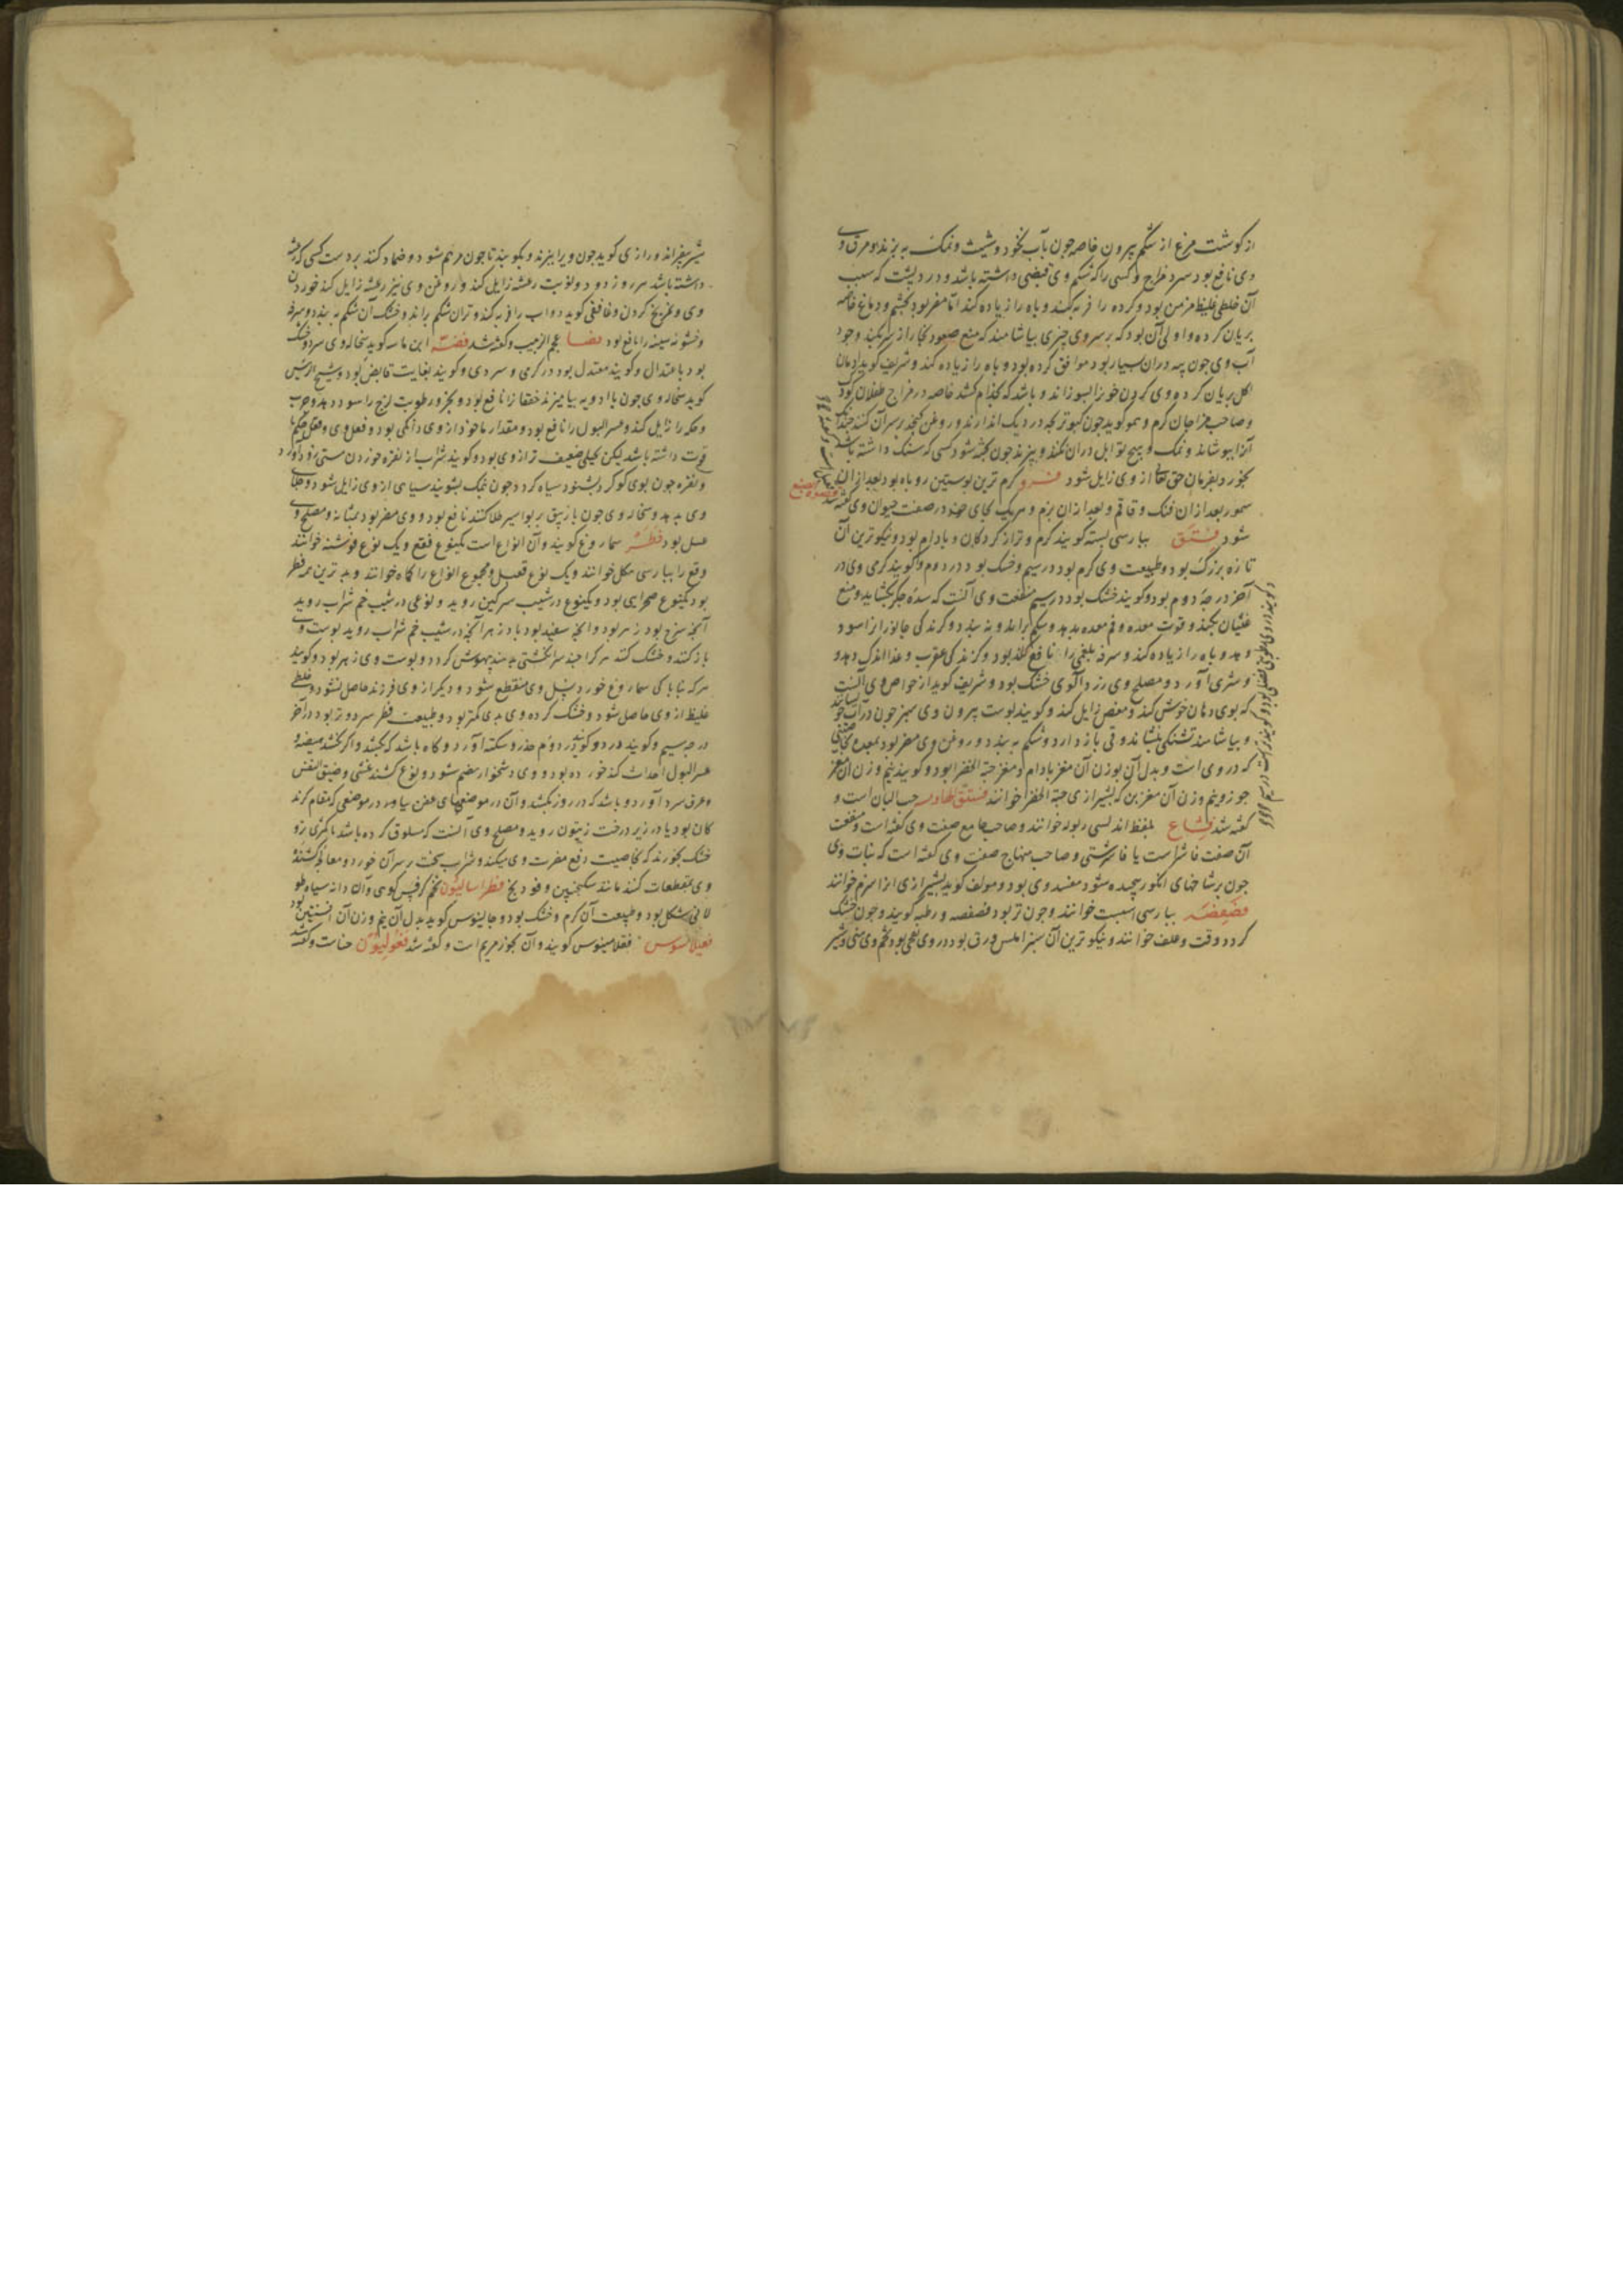 از گوشت مرغ از شکم بیرون خاصه چون بآب نخود و شبت و نمک به پزند و مرق وی
وی نافع بود سرد مزاج و کسی را که شکم وی قبضی داشته باشد و درد پشت که سبب
آن خلطی غلیظ مزمن بود و کرده را فربه کند و باه را زیاده کند اما مضر بود بچشم و دماغ خاصه
بریان کرده و اولی آن بود که بر سر وی چیزی بیاشامند که منع صعود بخار از سر بکند و چون
آب وی چون پیه دران بسیار بود موافق کرده بود و باه را زیاده کند و شریف کوید ادمان
اکل بریان کرده وی کردن خون را بسوزاند و باشد که بجذام کشد خاصه در مزاج طفلان کرم
و صاحب مزاجان کرم و همو کوید چون کبوتر بچه در دیک اندازند و روغن کنجد بر سر آن کنند چندانک
آنرا بپوشاند و نمک و هیچ توابل دران نکنند و بپزند چون پخته شود کسی که سنک داشته باشد
بخورد بفرمان حق تعالی از وی زایل شود فرو کرم ترین پوستین روباه بود بعد از آن
سمور بعد ازان فنک و قاقم و بعد ازان بزم و هریک بجای خود در صفت حیوان وی کفته شد
شود فستق بپارسی پسته کویند کرم و تر از کردکان و بادام بود و نیکوترین آن
تازه بزرک بود و طبیعت وی کرم بود در سیم و خشک بود در دوم و کویند کرمی وی در
آخر درجه دوم بود و کویند خشک بود در سیم منفعت وی آنست که سده جکر بکشاید و منع
غثیان بکند و قوت معده و فم معده بدهد و شکم براند و نه ببندد و کزندکی جانورانرا سود
دهد و باه را زیاده کند و سرفه بلغمی را نافع بود و کزندکی عقرب و غذا اندک دهد
و شری آورد و مصلح وی زردآلوی خشک بود و شریف کوید از خواص وی آنست
که بوی دهان خوش کند و مغص زایل کند و کویند پوست بیرون وی سبز چون در آب
و بیاشامند تشنکی بنشاند و قی باز دارد و شکم به بندد و روغن وی مضر بود بمعده
که در وی است و بدل آن بوزن آن مغز بادام و مغز حبة الخضرا بود و کویند نیم وزن آن مغز
جوز و نیم وزن آن مغز بن که بشیرازی حبة الخضرا خوانند فستق الهادیه حب البان است و
کفته شد فشاغ بلفظ اندلسی ربوله خوانند و صاحب جامع صفت وی کفته است و منفعت
آن صفت فاشراست یا فاشرستین و صاحب منهاج صفت وی کفته است که نبات وی
چون بر شاخهای انکور پیچیده شود مفسد وی بود و مولف کوید بشیرازی ازا سزم خوانند
فصفصه بپارسی اسپست خوانند و چون تر بود فصفصه و رطبه کویند و چون خشک
کردد وقت و علف خوانند و نیکوترین آن سبز املس ورق بود و در وی نفخی بود تخم وی منی و شیر
شیر بیفزاند و رازی کوید چون ویرا بپزند و بکوبند تا چون مرهم شود و ضماد کنند بر دست کسی که رعشه
داشته باشد هر روز دو نوبت رعشه زایل کند و روغن وی نیز رعشه زایل کند خوردن
وی و تمریخ کردن و غافقی کوید دواب را فربه کند و تر آن شکم براند و خشک آن شکم به بندد و سرفه
و خشونه سینه را نافع بود فضا عجم الزبیب و کفته شد فضه ابن ماسه کوید سحاله وی سرد و خشک
بود باعتدال و کویند معتدل بود در کرمی و سردی و کویند بغایت قابض بود و شیخ الرئیس
کوید سحاله وی چون با ادویه بیامیزند خفقانرا نافع بود و بخر و رطوبت لزج را سود دهد و جرب
و حکه را زایل کند و عسر البول را نافع بود و مقدار ماخوذ از وی دانکی بود و فعل وی و فعل
قوت داشته باشد لیکن بخیلی ضعیف تر از وی بود و کویند شراب از نقره خوردن مستی زود آورد
و نقره چون بوی کوکرد بشنود سیاه کردد چون نمک بشویند سیاهی از وی زایل شود و جلای
وی بدهد و سحاله وی چون با زیبق بر بواسیر طلا کنند نافع بود و وی مضر بود بمثانه و مصلح وی
عسل بود فطر سماروغ کویند و آن انواع است یکنوع فقع و یک نوع فوشنه خوانند
وقع را بپارسی هکل خوانند و یک نوع قعبل و مجموع انواع را کماه خوانند و بدترین همه فطر
بود یکنوع صحرایی بود و یکنوع در شیب سرکین روید و نوعی در شیب خم شراب روید
آنچه سرخ بود زهر بود و انچه سفید بود بادزهر آنچه در شیب خم شراب روید پوست وی
باز کنند و خشک کنند هر کرا چند سر انکشتی بدهند بیهوش کردد و پوست وی زهر بود و کویند
هرکه نباتا کی سماروغ خورد نسل وی منقطع شود و دیکر از وی فرزند حاصل نشود و خلطی
غلیظ از وی حاصل شود و خشک کرده وی بدی کمتر بود و طبیعت فطر سرد و تر بود در آخر
درجه سیم و کویند در دوم خدر و سکته آورد و کاه باشد که بکشد و اکر نکشد هیضه و
عسر البول احداث کند خورده بود و وی دشخوار هضم شود و نوع کشنده غشی و ضیق النفس
و عرق سرد آورد و باشد که در روز بکشد و آن در موضعهای عفن یا در موضعی که مقام کزندکان
کان بود یا در زیر درخت زیتون روید و مصلح وی آنست که مسلوق کرده باشد با کمثری تر و
خشک بخورند که بخاصیت دفع مضرت وی میکند و شراب سخت بر سر آن خورد و معالجه کشنده
وی بمقطعات کنند مانند سکنجبین و فودنج فطراسالیون تخم کرفس کوهی و آن دانه سیاه طو
لانی شکل بود و طبیعت آن کرم و خشک بود و جالینوس کوید بدل آن نیم وزن آن افسنتین بود
فقلامینوس کویند و آن بخور مریم است و کفته شد